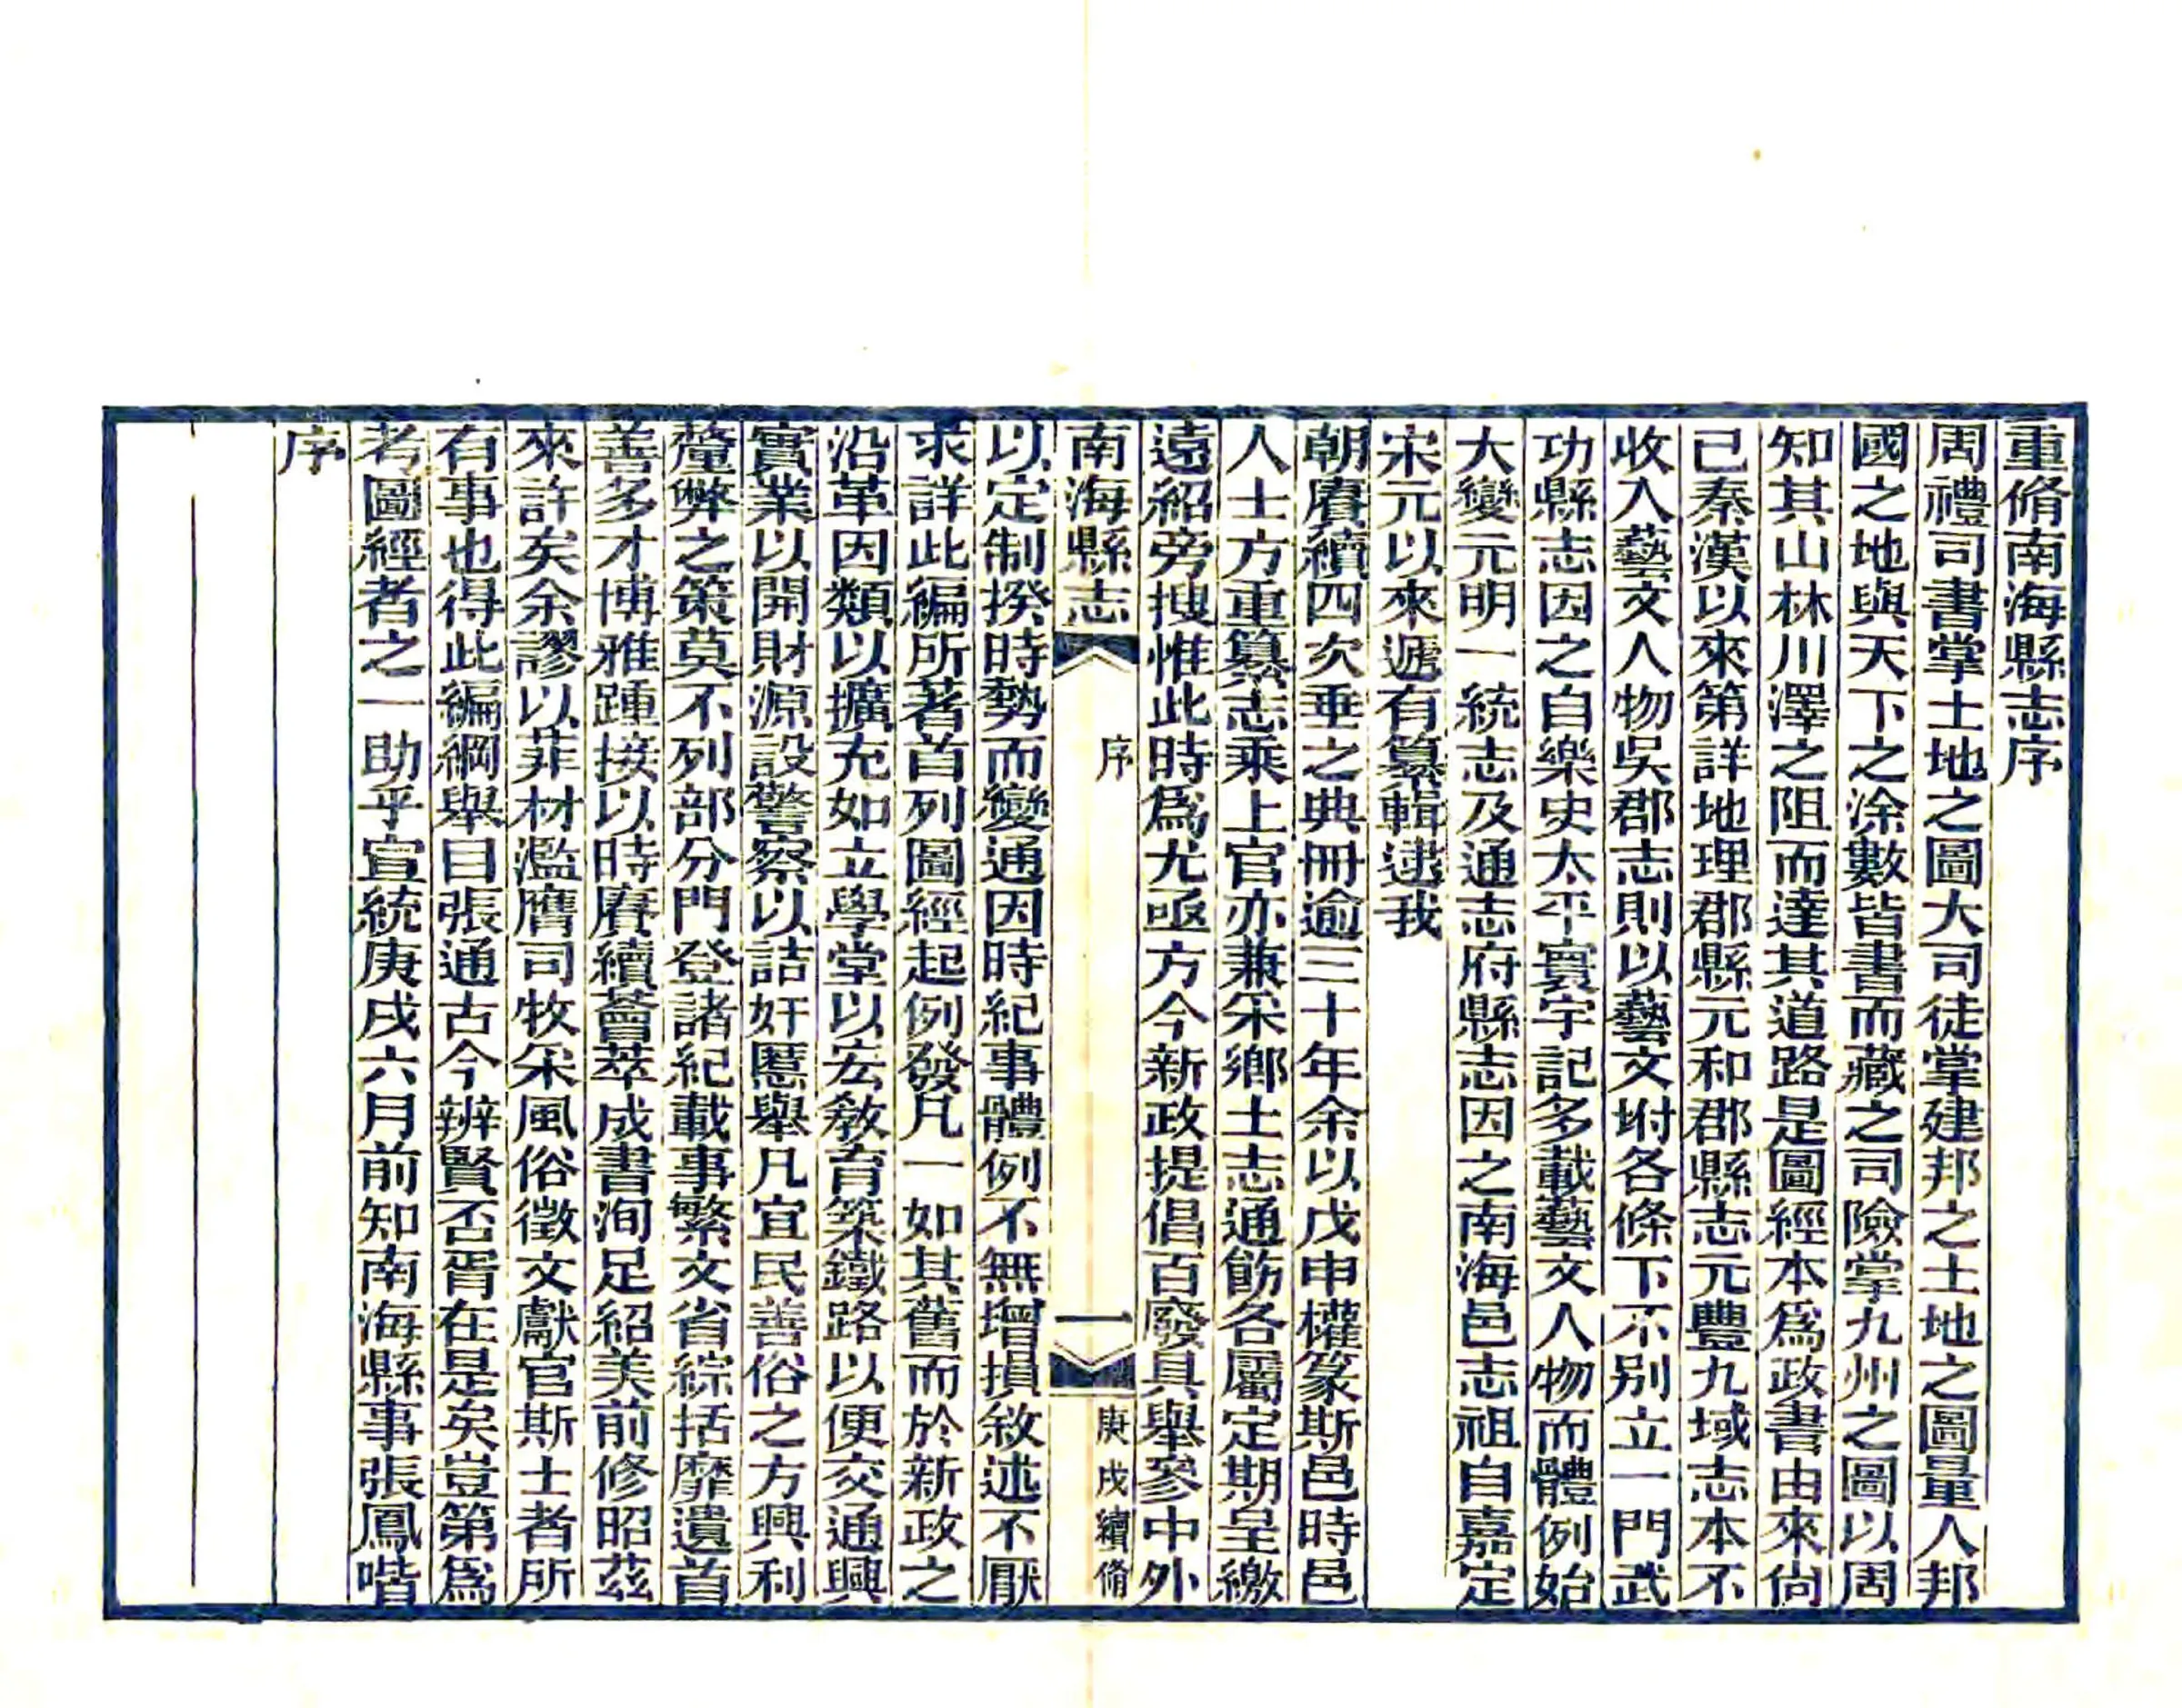 重脩南海縣志序
周禮司書掌土地之圖大司徒掌建邦之土地之圖量人邦
國之地與天下之涂數皆書而藏之司險掌九州之圖以周
知其山林川澤之阻而達其道路是圖經本爲政書由來尙
已秦漢以來第詳地理郡縣元和郡縣志元豐九域志本不
收入藝文人物吳郡志則以藝文坿各條下不别立一門武
功縣志因之自樂史太平寰宇記多載藝文人物而體例始
大變元明一統志及通志府縣志因之南海邑志祖自嘉定
宋元以來遞有纂輯逮我
朝賡續四次垂之典冊逾三十年余以戊申權篆斯邑時邑
人士方重纂志乘上官亦兼采鄉土志通飭各屬定期呈繳
遠紹旁搜惟此時爲尤亟方今新政提倡百廢具舉參中外
南海縣志 序 一 庚戌續脩
以定制揆時勢而變通因時紀事體例不無增損敘述不厭
求詳此編所著首列圖經起例發凡一如其舊而於新政之
沿革因類以擴充如立學堂以宏敎育築鐵路以便交通興
實業以開財源設警察以詰奸慝舉凡宜民善俗之方興利
釐弊之策莫不列部分門登諸紀載事繁文省綜括靡遺首
善多才博雅踵接以時賡續薈萃成書洵足紹美前修昭茲
來許矣余謬以菲材濫膺司牧采風俗徵文獻官斯土者所
有事也得此編綱舉目張通古今辨賢否胥在是矣豈第爲
考圖經者之一助乎宣統庚戌六月前知南海縣事張鳳喈
序